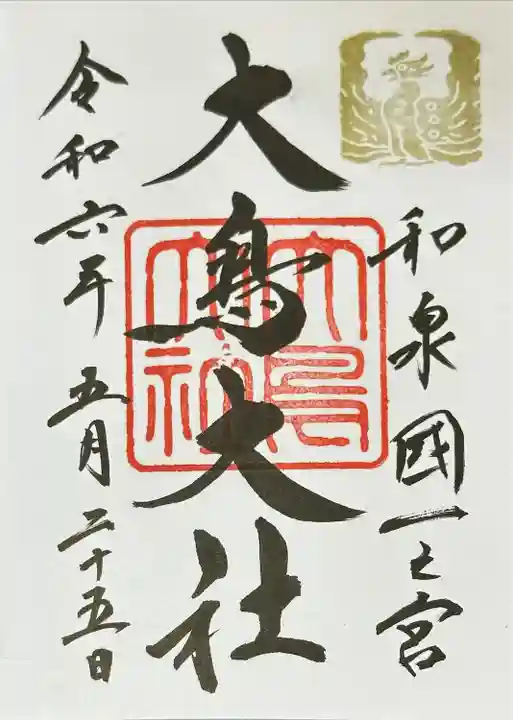 和泉國一之宮
大鳥大社
大鳥大社
令和六年 五月 二十五日